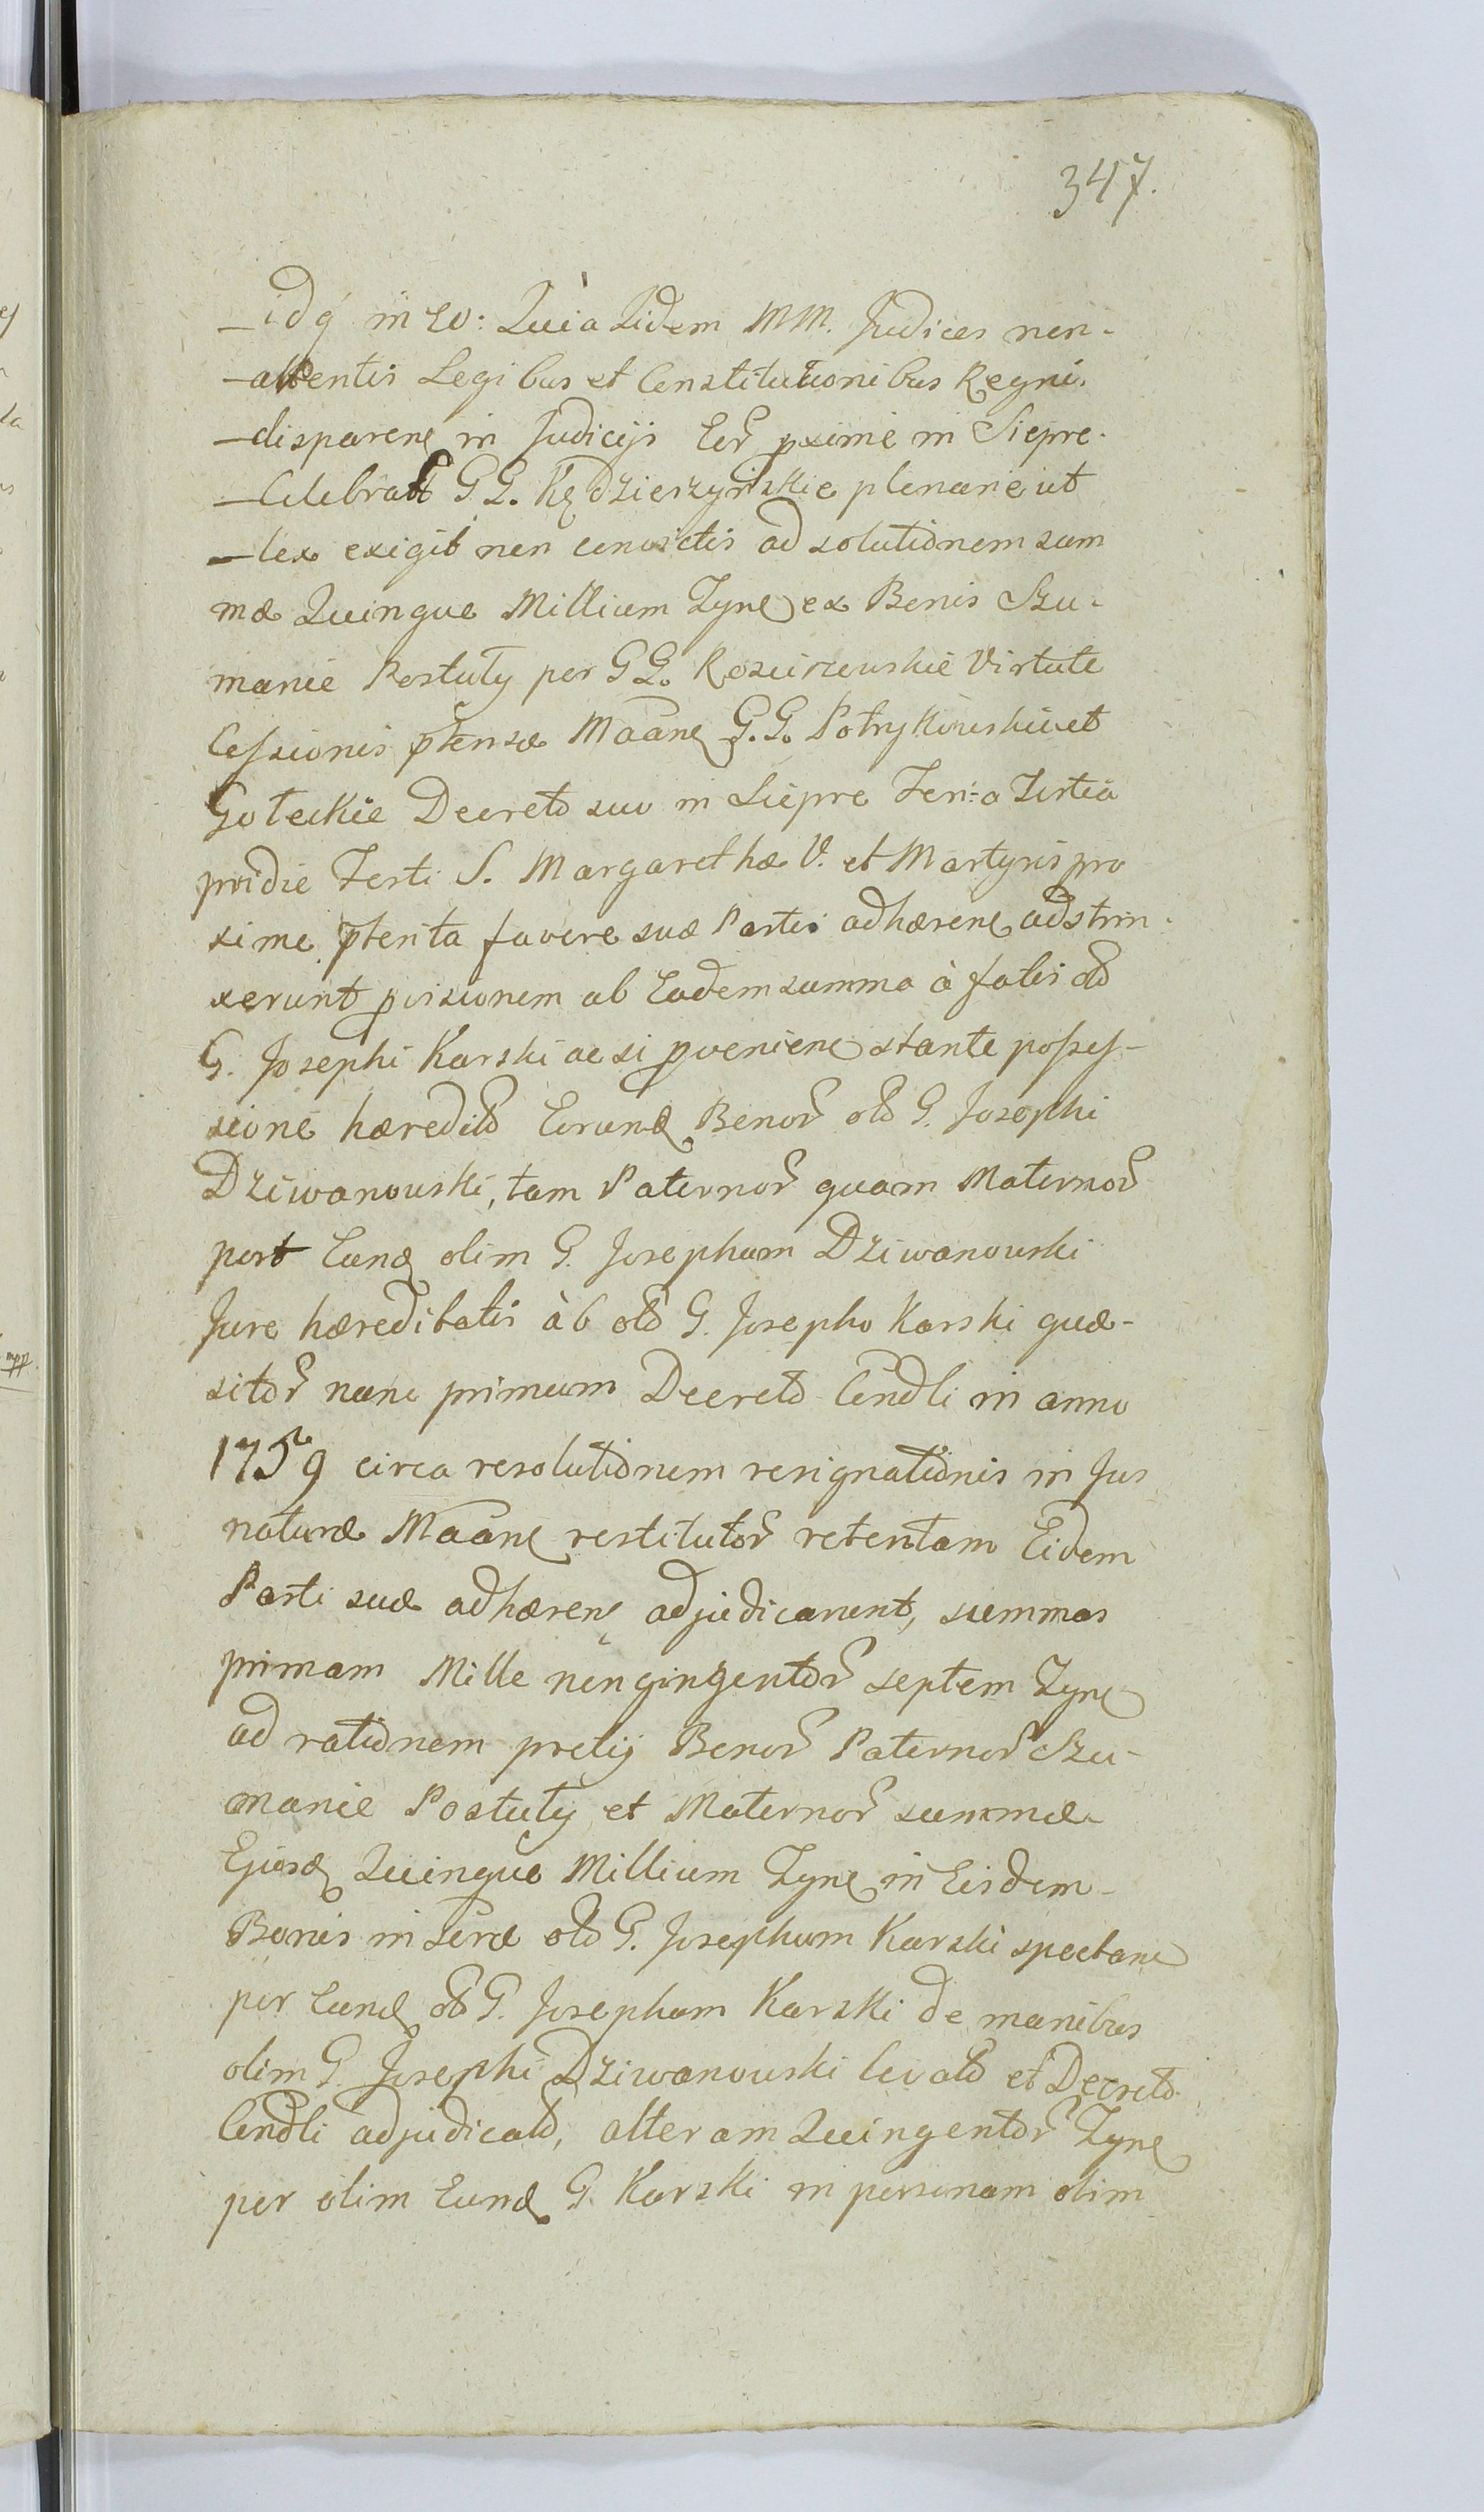 347.
idq in eo: Quia Iidem MM. Judices non-
attentis Legibus et Constitutionibus Regni
disparen in Judicijs Eor pxime in Siepre
Celebrat GG. Kędzierzyńskie plenarie ut
lex exigit non convictis ad solutionem sum
mæ Quinque Millium Zyne ex Bonis Szu-
manie Postuły per GG. Rosciszewskie Virtute
Cessionis ptensæ Maane G.G. Potrykowskie et
Goteckie Decreto suo in Siepre Feria Tertia
pridie Festi S. Margarethæ V. et Martyris pro
xime pterita favore suæ Partis adhæren adstrin-
xerunt pvisionem ab Eadem summa à fatis olo
G. Josephi Karski ac si pvenien stante posses-
sione hæredito Eorund Bonor olo G. Josephi
Dziwanowski, tam Paternor quam Maternor
post Eund olim G. Josephum Dziwanowski
Jure hæreditatis àb olo G. Josepho Karski quæ-
sitor nunc primum Decreto Condli in anno
1759 circa resolutionem resignationis in Jus
naturæ Maane restitutor retentam Eidem
Parti suæ adhæren adjudicarunt, summas
primam Mille nongingentor septem Zyne
ad rationem pretij Bonor Paternor Szu-
manie Postuły et Maternor summæ
Ejusd Quinque Millium Zyne in Eisdem
Bonis in seræ olo G. Josephum Karski spectane
per Eund olo G. Josephum Karski de manibus
olim G. Josephi Dziwanowski levato et Decreto
Condli adjudicato, alteram Quingentor Zyne
per olim Eund G. Karski in personam olim